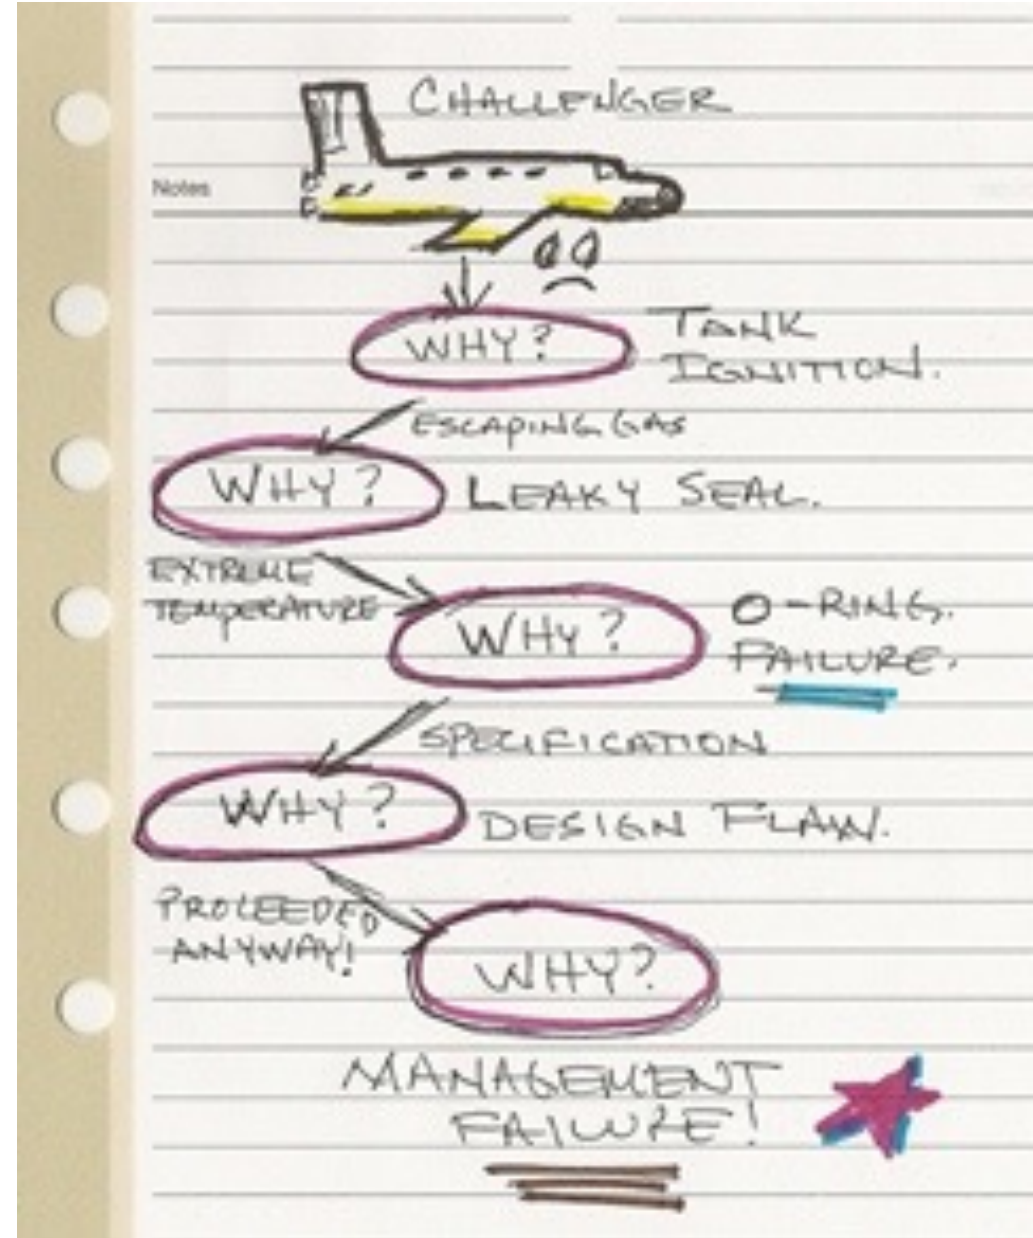 CHALLENGER
Notes
WHY?
TANK
IGNITION.
ESCAPING GAS
WHY?
LEAKY SEAL.
EXTREME
TEMPERATURE
WHY?
O-RING.
FAILURE.
SPECIFICATION
WHY?
DESIGN FLAW.
PROCEEDED
ANYWAY!
WHY?
MANAGEMENT
FAILURE!